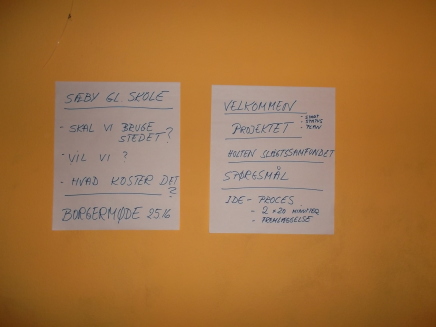 SÆBY GL. SKOLE
- SKAL VI BRUGE
STEDET?
- VIL VI ?
- HVAD KOSTER DET
?
BORGERMØDE 25/6
VELKOMMEN
PROJEKTET
- STATUS
- PLAN
HOLTEN SLÆGTSSAMFUNDET
SPØRGSMÅL
IDE - PROCES
- 2 x 20 MINUTTER
- FREMLÆGGELSE